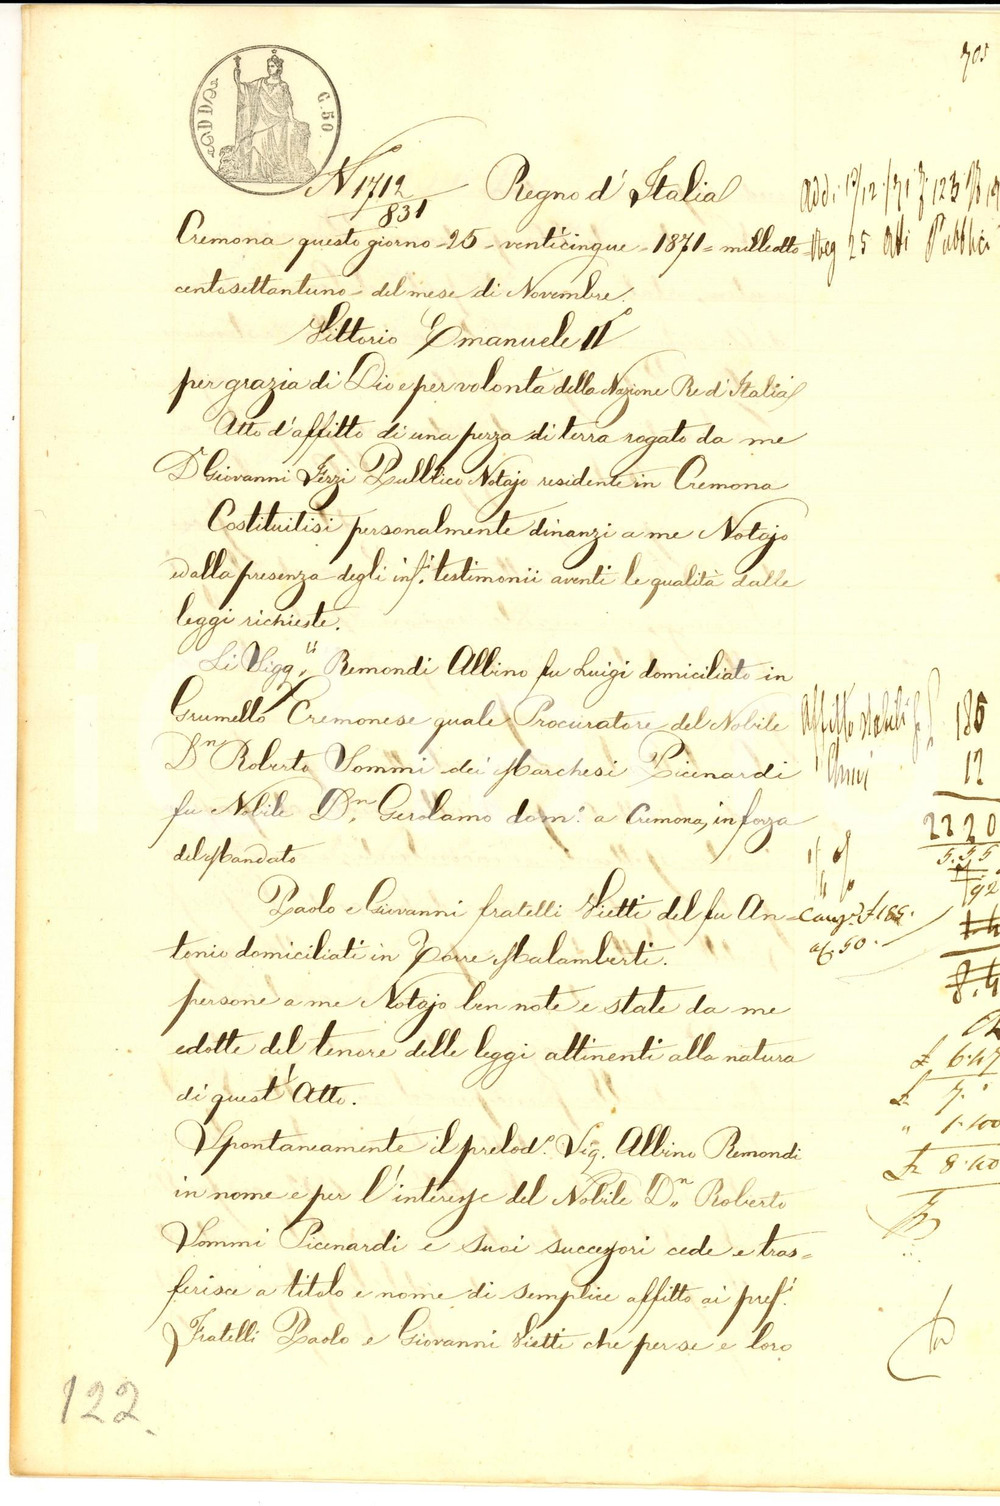 705
C. 50
N 1712
831
Regno d'Italia
Cremona questo giorno - 25 - venticinque - 1871 = milleotto-
centosettantuno - del mese di Novembre.
Vittorio Emanuele II
per grazia di Dio e per volontà della Nazione Re d'Italia
Atto d'affitto di una pezza di terra rogato da me
Dr Giovanni Pubblico Notajo residente in Cremona
Costituitisi personalmente dinanzi a me Notajo
ed alla presenza degli infi. testimonii aventi le qualità dalle
leggi richieste.
Li Sigg.ri Remondi Albino fu Luigi domiciliato in
Grumello Cremonese quale Procuratore del Nobile
Dn Roberto Sommi dei Marchesi Picenardi
fu Nobile Dn. Gerolamo dom.o a Cremona, in forza
del Mandato
Paolo e Giovanni fratelli Vietti del fu An-
tonio domiciliati in Torre Malamberti.
persone a me Notajo ben note e state da me
edotte del tenore delle leggi attinenti alla natura
di quest'Atto.
Spontaneamente il prelod.o Sig. Albino Remondi
in nome e per l'interesse del Nobile Dn. Roberto
Sommi Picenardi e suoi successori cede e tras=
ferisce a titolo e nome di semplice affitto ai pref.i
Fratelli Paolo e Giovanni Vietti che per se e loro
Reg 25 Atti Pubblici
Affitto stabili
185
Anni
12
2220
5.55
£ 6.47
1.100
8.40
122